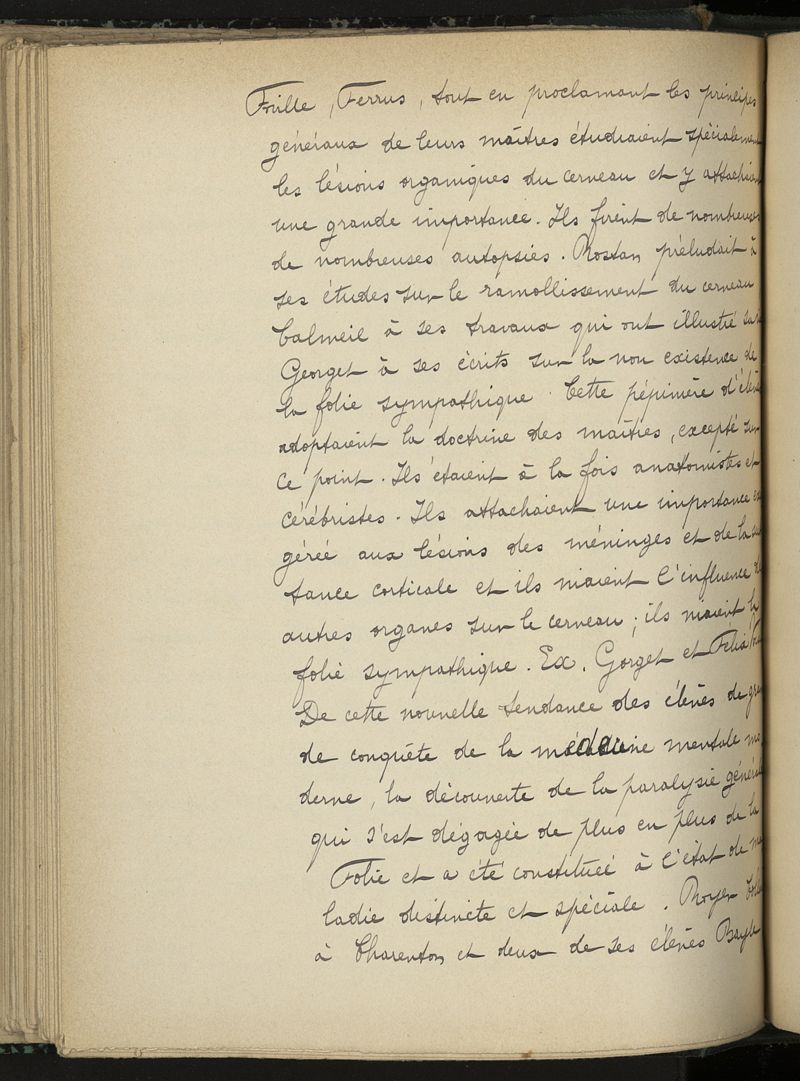 Foille, Ferrus, tout en proclamant les principes
généraux de leurs maîtres étudiaient spécialement
les lésions organiques du cerveau et y attachaient
une grande importance. Ils firent de nombreuses
de nombreuses autopsies. Rostan préludait à
ses études sur le ramollissement du cerveau
Calmeil à ses travaux qui ont illustré son
Georget à ses écrits sur la non existence de
la folie sympathique. Cette pépinière d'élèves
adoptaient la doctrine des maîtres, excepté sur
ce point. Ils étaient à la fois anatomistes et
cérébristes. Ils attachaient une importance
gérée aux lésions des méninges et de la
tance corticale et ils niaient l'influence
autres organes sur le cerveau; ils niaient la
folie sympathique. Ex. Gorget et Félix
De cette nouvelle tendance des élèves de
de conquête de la médecine mentale mo
derne, la découverte de la paralysie générale
qui s'est dégagée de plus en plus de la
Folie et a été constituée à l'état de ma
ladie distincte et spéciale. Royer
à Charenton et deux de ses élèves Bayle